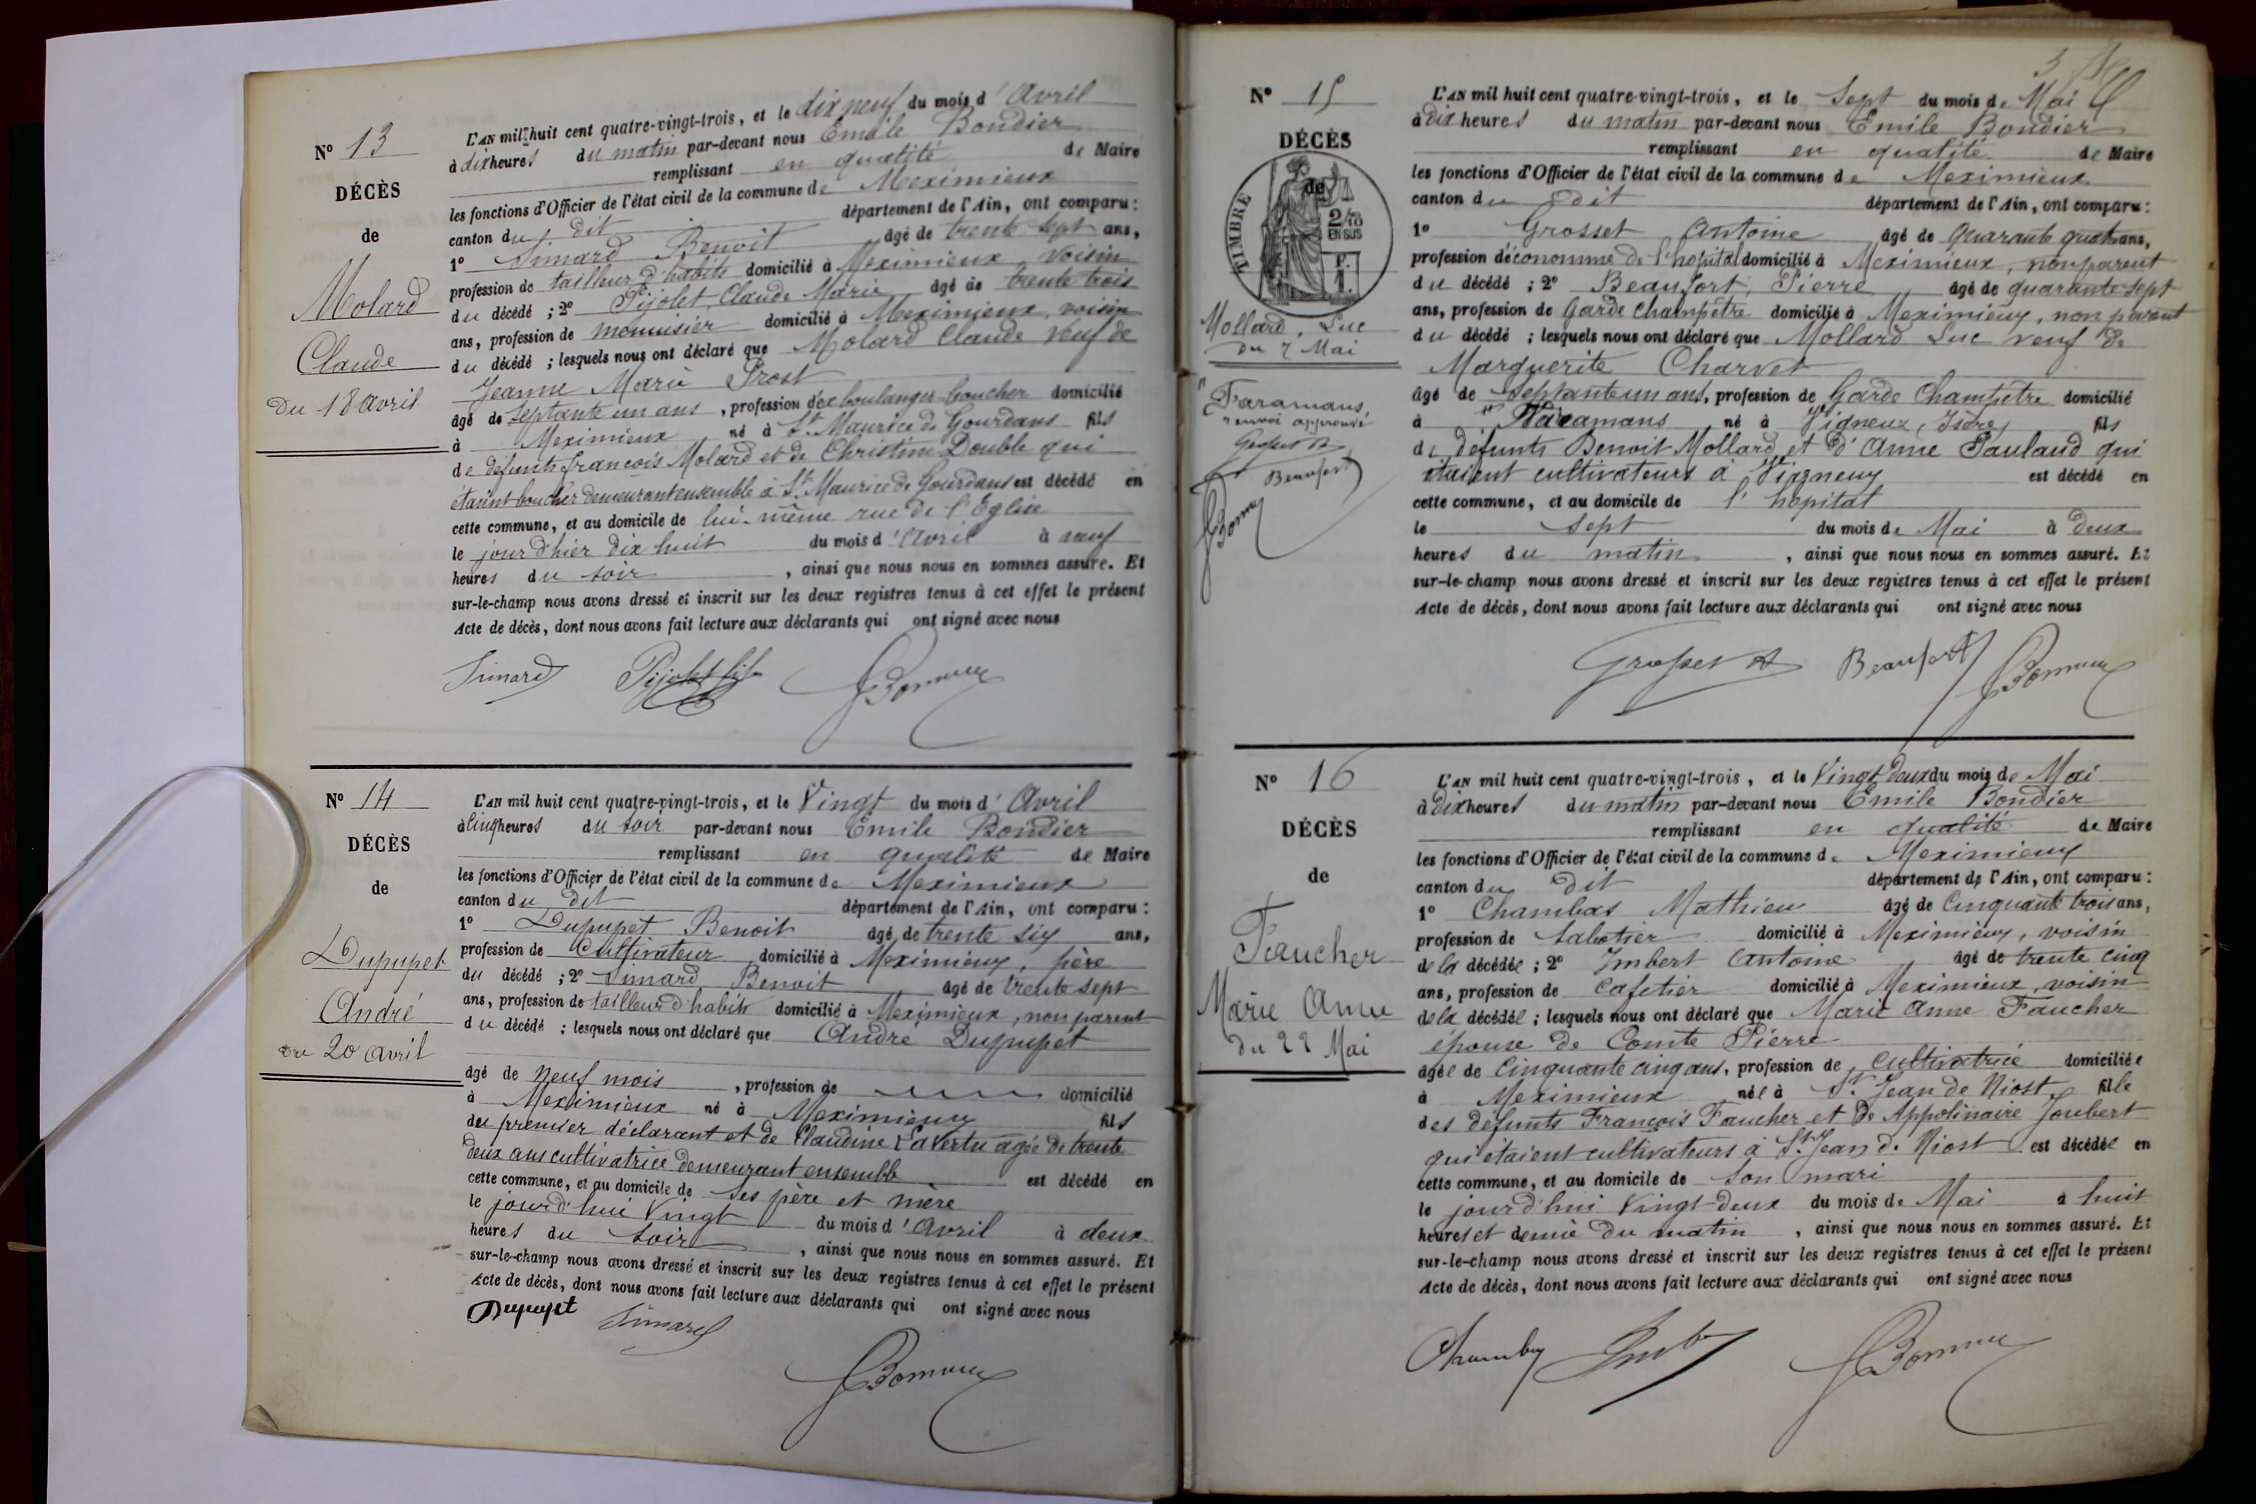 N° 13
DÉCÈS
de
Molard
Claude
du 18 avril
L'AN mil huit cent quatre-vingt-trois, et le dix neuf du mois d'Avril
à dix heures du matin par-devant nous Emile Bondier
remplissant en qualité de Maire
les fonctions d'Officier de l'état civil de la commune de Meximieux
canton du dit département de l'Ain, ont comparu :
1° Simard Benoit âgé de trente sept ans,
profession de tailleur d'habits domicilié à Meximieux voisin
du décédé ; 2° Pijolet Claude Marie âgé de trente trois
ans, profession de menuisier domicilié à Meximieux, voisin
du décédé ; lesquels nous ont déclaré que Molard Claude veuf de
Jeanne Marie Prost
âgé de septante un ans, profession d'ex boulanger boucher domicilié
à Meximieux né à St Maurice de Gourdans fils
de défunts françois Molard et de Christine Double qui
étaient boucher demeurant ensemble à St Maurice de Gourdans est décédé en
cette commune, et au domicile de lui-même rue de l'Eglise
le jour d'hier dix huit du mois d'Avril à neuf
heures du soir, ainsi que nous nous en sommes assuré. Et
sur-le-champ nous avons dressé et inscrit sur les deux registres tenus à cet effet le présent
Acte de décès, dont nous avons fait lecture aux déclarants qui ont signé avec nous
Simard Pijolet fils
N° 14
DÉCÈS
de
Dupupet
André
du 20 avril
L'AN mil huit cent quatre-vingt-trois, et le Vingt du mois d'Avril
à cinq heures du soir par-devant nous Emile Bondier
remplissant en qualité de Maire
les fonctions d'Officier de l'état civil de la commune de Meximieux
canton du dit département de l'Ain, ont comparu :
1° Dupupet Benoit âgé de trente six ans,
profession de Cultivateur domicilié à Meximieux, père
du décédé ; 2° Simard Benoit âgé de trente sept
ans, profession de tailleur d'habits domicilié à Meximieux, non parent
du décédé ; lesquels nous ont déclaré que André Dupupet
âgé de neuf mois, profession de domicilié
à Meximieux né à Meximieux fils
du premier déclarant et de Claudine Lavertu agée de trente
deux ans cultivatrice demeurant ensemble est décédé en
cette commune, et au domicile de ses père et mère
le jourd'hui Vingt du mois d'Avril à deux
heures du soir, ainsi que nous nous en sommes assuré. Et
sur-le-champ nous avons dressé et inscrit sur les deux registres tenus à cet effet le présent
Acte de décès, dont nous avons fait lecture aux déclarants qui ont signé avec nous
Dupupet Simard
3
N° 15
DÉCÈS
de
TIMBRE
2/10
EN SUS
F.
1.
Mollard, Luc
du 7 Mai
"Faramans,
renvoi approuvé
Grosset A
Beaufort
L'AN mil huit cent quatre-vingt-trois, et le Sept du mois de Mai
à dix heures du matin par-devant nous Emile Bondier
remplissant en qualité de Maire
les fonctions d'Officier de l'état civil de la commune de Meximieux
canton du dit département de l'Ain, ont comparu :
1° Grosset Antoine âgé de quarante quatre ans,
profession d'économme de l'hopital domicilié à Meximieux, non parent
du décédé ; 2° Beaufort, Pierre âgé de quarante sept
ans, profession de Garde Champêtre domicilié à Meximieux, non parent
du décédé ; lesquels nous ont déclaré que Mollard Luc veuf de
Marguerite Charvet
âgé de Septante un ans, profession de Garde Champêtre domicilié
à Faramans né à Vigneux, Isère, fils
de défunts Benoit Mollard et d'Anne Pauland qui
étaient cultivateurs à Vigneux est décédé en
cette commune, et au domicile de l'hopital
le sept du mois de Mai à deux
heures du matin, ainsi que nous nous en sommes assuré. Et
sur-le-champ nous avons dressé et inscrit sur les deux registres tenus à cet effet le présent
Acte de décès, dont nous avons fait lecture aux déclarants qui ont signé avec nous
Grosset A Beaufort
N° 16
DÉCÈS
de
Faucher
Marie Anne
du 22 Mai
L'AN mil huit cent quatre-vingt-trois, et le Vingt deux du mois de Mai
à dix heures du matin par-devant nous Emile Bondier
remplissant en qualité de Maire
les fonctions d'Officier de l'état civil de la commune de Meximieux
canton du dit département de l'Ain, ont comparu :
1° Chambas Mathieu âgé de Cinquante trois ans,
profession de sabotier domicilié à Meximieux, voisin
de la décédée ; 2° Imbert Antoine âgé de trente cinq
ans, profession de Cafetier domicilié à Meximieux, voisin
de la décédée ; lesquels nous ont déclaré que Marie Anne Faucher
épouse de Comte Pierre
âgée de Cinquante cinq ans, profession de Cultivatrice domiciliée
à Meximieux née à St Jean de Niost fille
des défunts François Faucher et de Appolinaire Joubert
qui étaient cultivateurs à St Jean de Niost est décédée en
cette commune, et au domicile de son mari
le jourd'hui Vingt deux du mois de Mai à huit
heures et demie du matin, ainsi que nous nous en sommes assuré. Et
sur-le-champ nous avons dressé et inscrit sur les deux registres tenus à cet effet le présent
Acte de décès, dont nous avons fait lecture aux déclarants qui ont signé avec nous